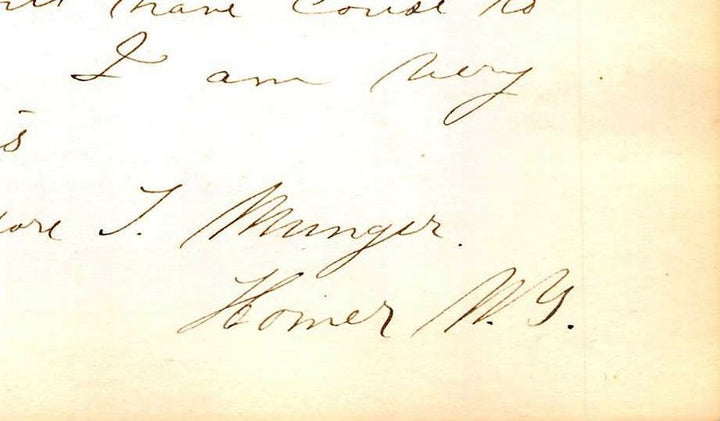 have cause to
I am very
is
ore T. Munger.
Homer N.Y.